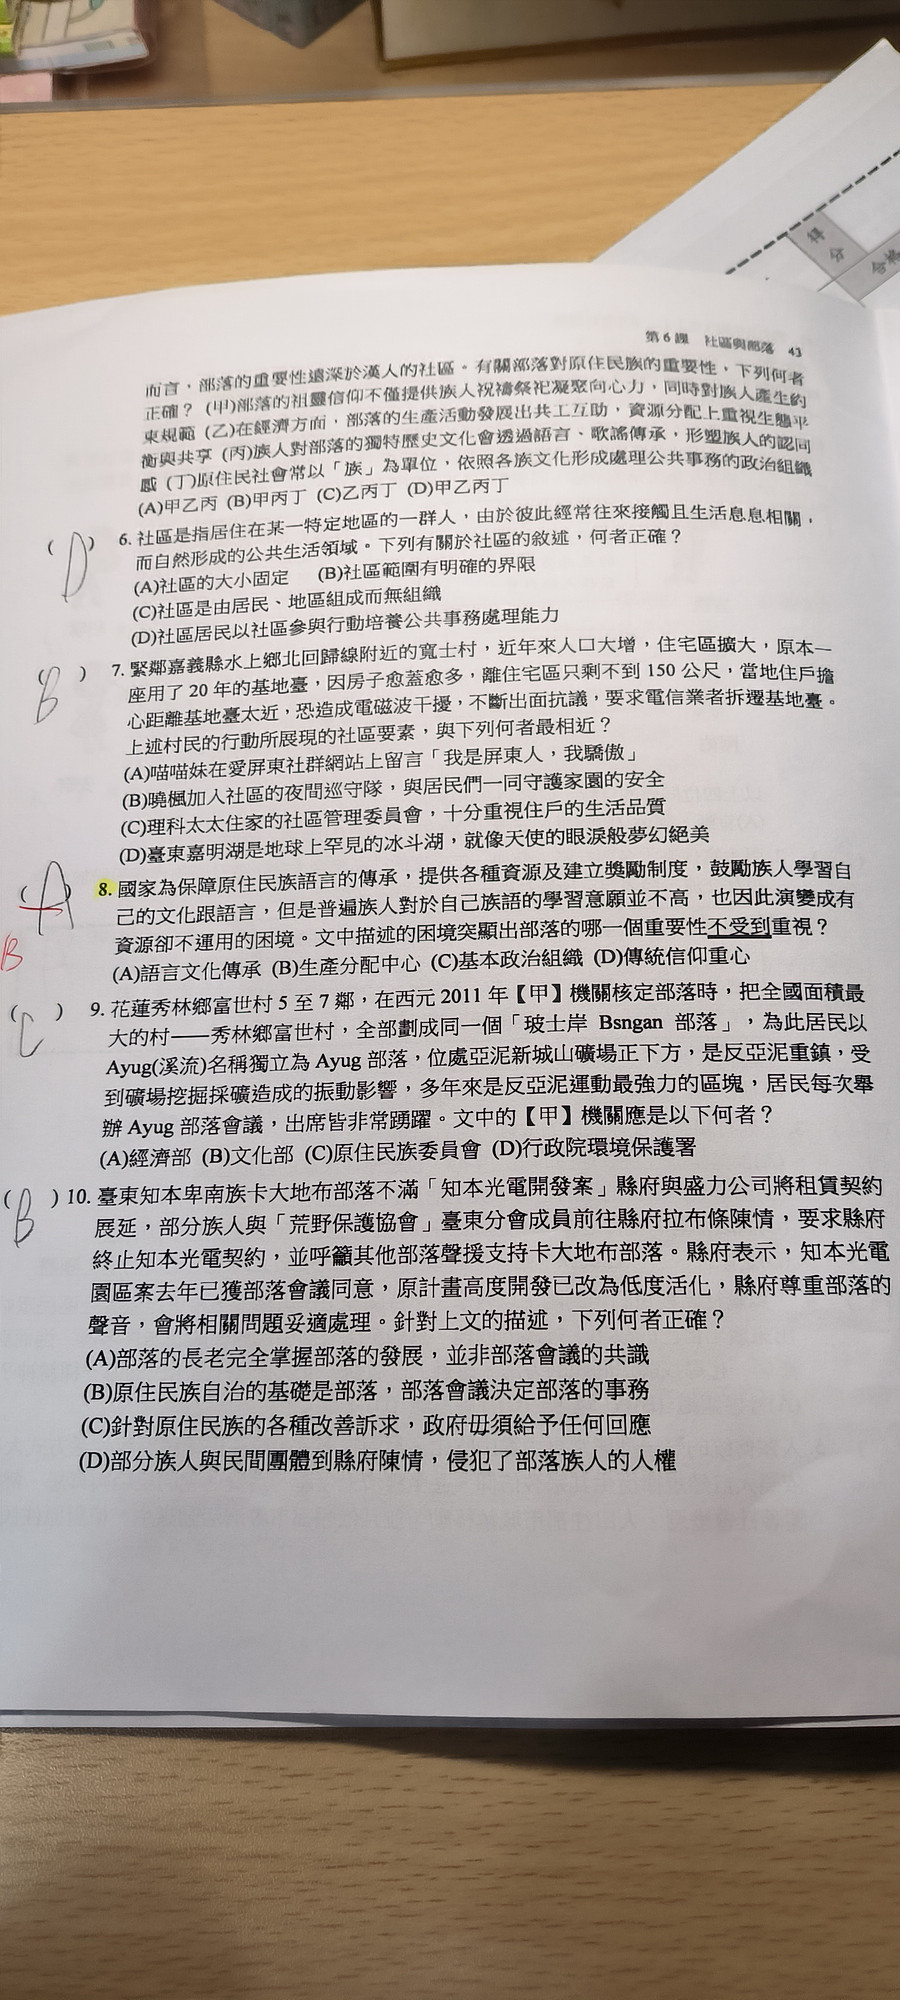 得分
合格
第6課 社區與部落 43
而言，部落的重要性遠深於漢人的社區。有關部落對原住民族的重要性，下列何者
正確？ (甲)部落的祖靈信仰不僅提供族人祝禱祭祀凝聚向心力，同時對族人產生約
束規範 (乙)在經濟方面，部落的生產活動發展出共工互助，資源分配上重視生態平
衡與共享 (丙)族人對部落的獨特歷史文化會透過語言、歌謠傳承，形塑族人的認同
感 (丁)原住民社會常以「族」為單位，依照各族文化形成處理公共事務的政治組織
(A)甲乙丙 (B)甲丙丁 (C)乙丙丁 (D)甲乙丙丁
( D ) 6. 社區是指居住在某一特定地區的一群人，由於彼此經常往來接觸且生活息息相關，
而自然形成的公共生活領域。下列有關於社區的敘述，何者正確？
(A)社區的大小固定 (B)社區範圍有明確的界限
(C)社區是由居民、地區組成而無組織
(D)社區居民以社區參與行動培養公共事務處理能力
( B ) 7. 緊鄰嘉義縣水上鄉北回歸線附近的寬士村，近年來人口大增，住宅區擴大，原本一
座用了 20 年的基地臺，因房子愈蓋愈多，離住宅區只剩不到 150 公尺，當地住戶擔
心距離基地臺太近，恐造成電磁波干擾，不斷出面抗議，要求電信業者拆遷基地臺。
上述村民的行動所展現的社區要素，與下列何者最相近？
(A)喵喵妹在愛屏東社群網站上留言「我是屏東人，我驕傲」
(B)曉楓加入社區的夜間巡守隊，與居民們一同守護家園的安全
(C)理科太太住家的社區管理委員會，十分重視住戶的生活品質
(D)臺東嘉明湖是地球上罕見的冰斗湖，就像天使的眼淚般夢幻絕美
( A ) 8. 國家為保障原住民族語言的傳承，提供各種資源及建立獎勵制度，鼓勵族人學習自
己的文化跟語言，但是普遍族人對於自己族語的學習意願並不高，也因此演變成有
B 資源卻不運用的困境。文中描述的困境突顯出部落的哪一個重要性不受到重視？
(A)語言文化傳承 (B)生產分配中心 (C)基本政治組織 (D)傳統信仰重心
( C ) 9. 花蓮秀林鄉富世村 5 至 7 鄰，在西元 2011 年【甲】機關核定部落時，把全國面積最
大的村——秀林鄉富世村，全部劃成同一個「玻士岸 Bsngan 部落」，為此居民以
Ayug(溪流)名稱獨立為 Ayug 部落，位處亞泥新城山礦場正下方，是反亞泥重鎮，受
到礦場挖掘採礦造成的振動影響，多年來是反亞泥運動最強力的區塊，居民每次舉
辦 Ayug 部落會議，出席皆非常踴躍。文中的【甲】機關應是以下何者？
(A)經濟部 (B)文化部 (C)原住民族委員會 (D)行政院環境保護署
( B ) 10. 臺東知本卑南族卡大地布部落不滿「知本光電開發案」縣府與盛力公司將租賃契約
展延，部分族人與「荒野保護協會」臺東分會成員前往縣府拉布條陳情，要求縣府
終止知本光電契約，並呼籲其他部落聲援支持卡大地布部落。縣府表示，知本光電
園區案去年已獲部落會議同意，原計畫高度開發已改為低度活化，縣府尊重部落的
聲音，會將相關問題妥適處理。針對上文的描述，下列何者正確？
(A)部落的長老完全掌握部落的發展，並非部落會議的共識
(B)原住民族自治的基礎是部落，部落會議決定部落的事務
(C)針對原住民族的各種改善訴求，政府毋須給予任何回應
(D)部分族人與民間團體到縣府陳情，侵犯了部落族人的人權